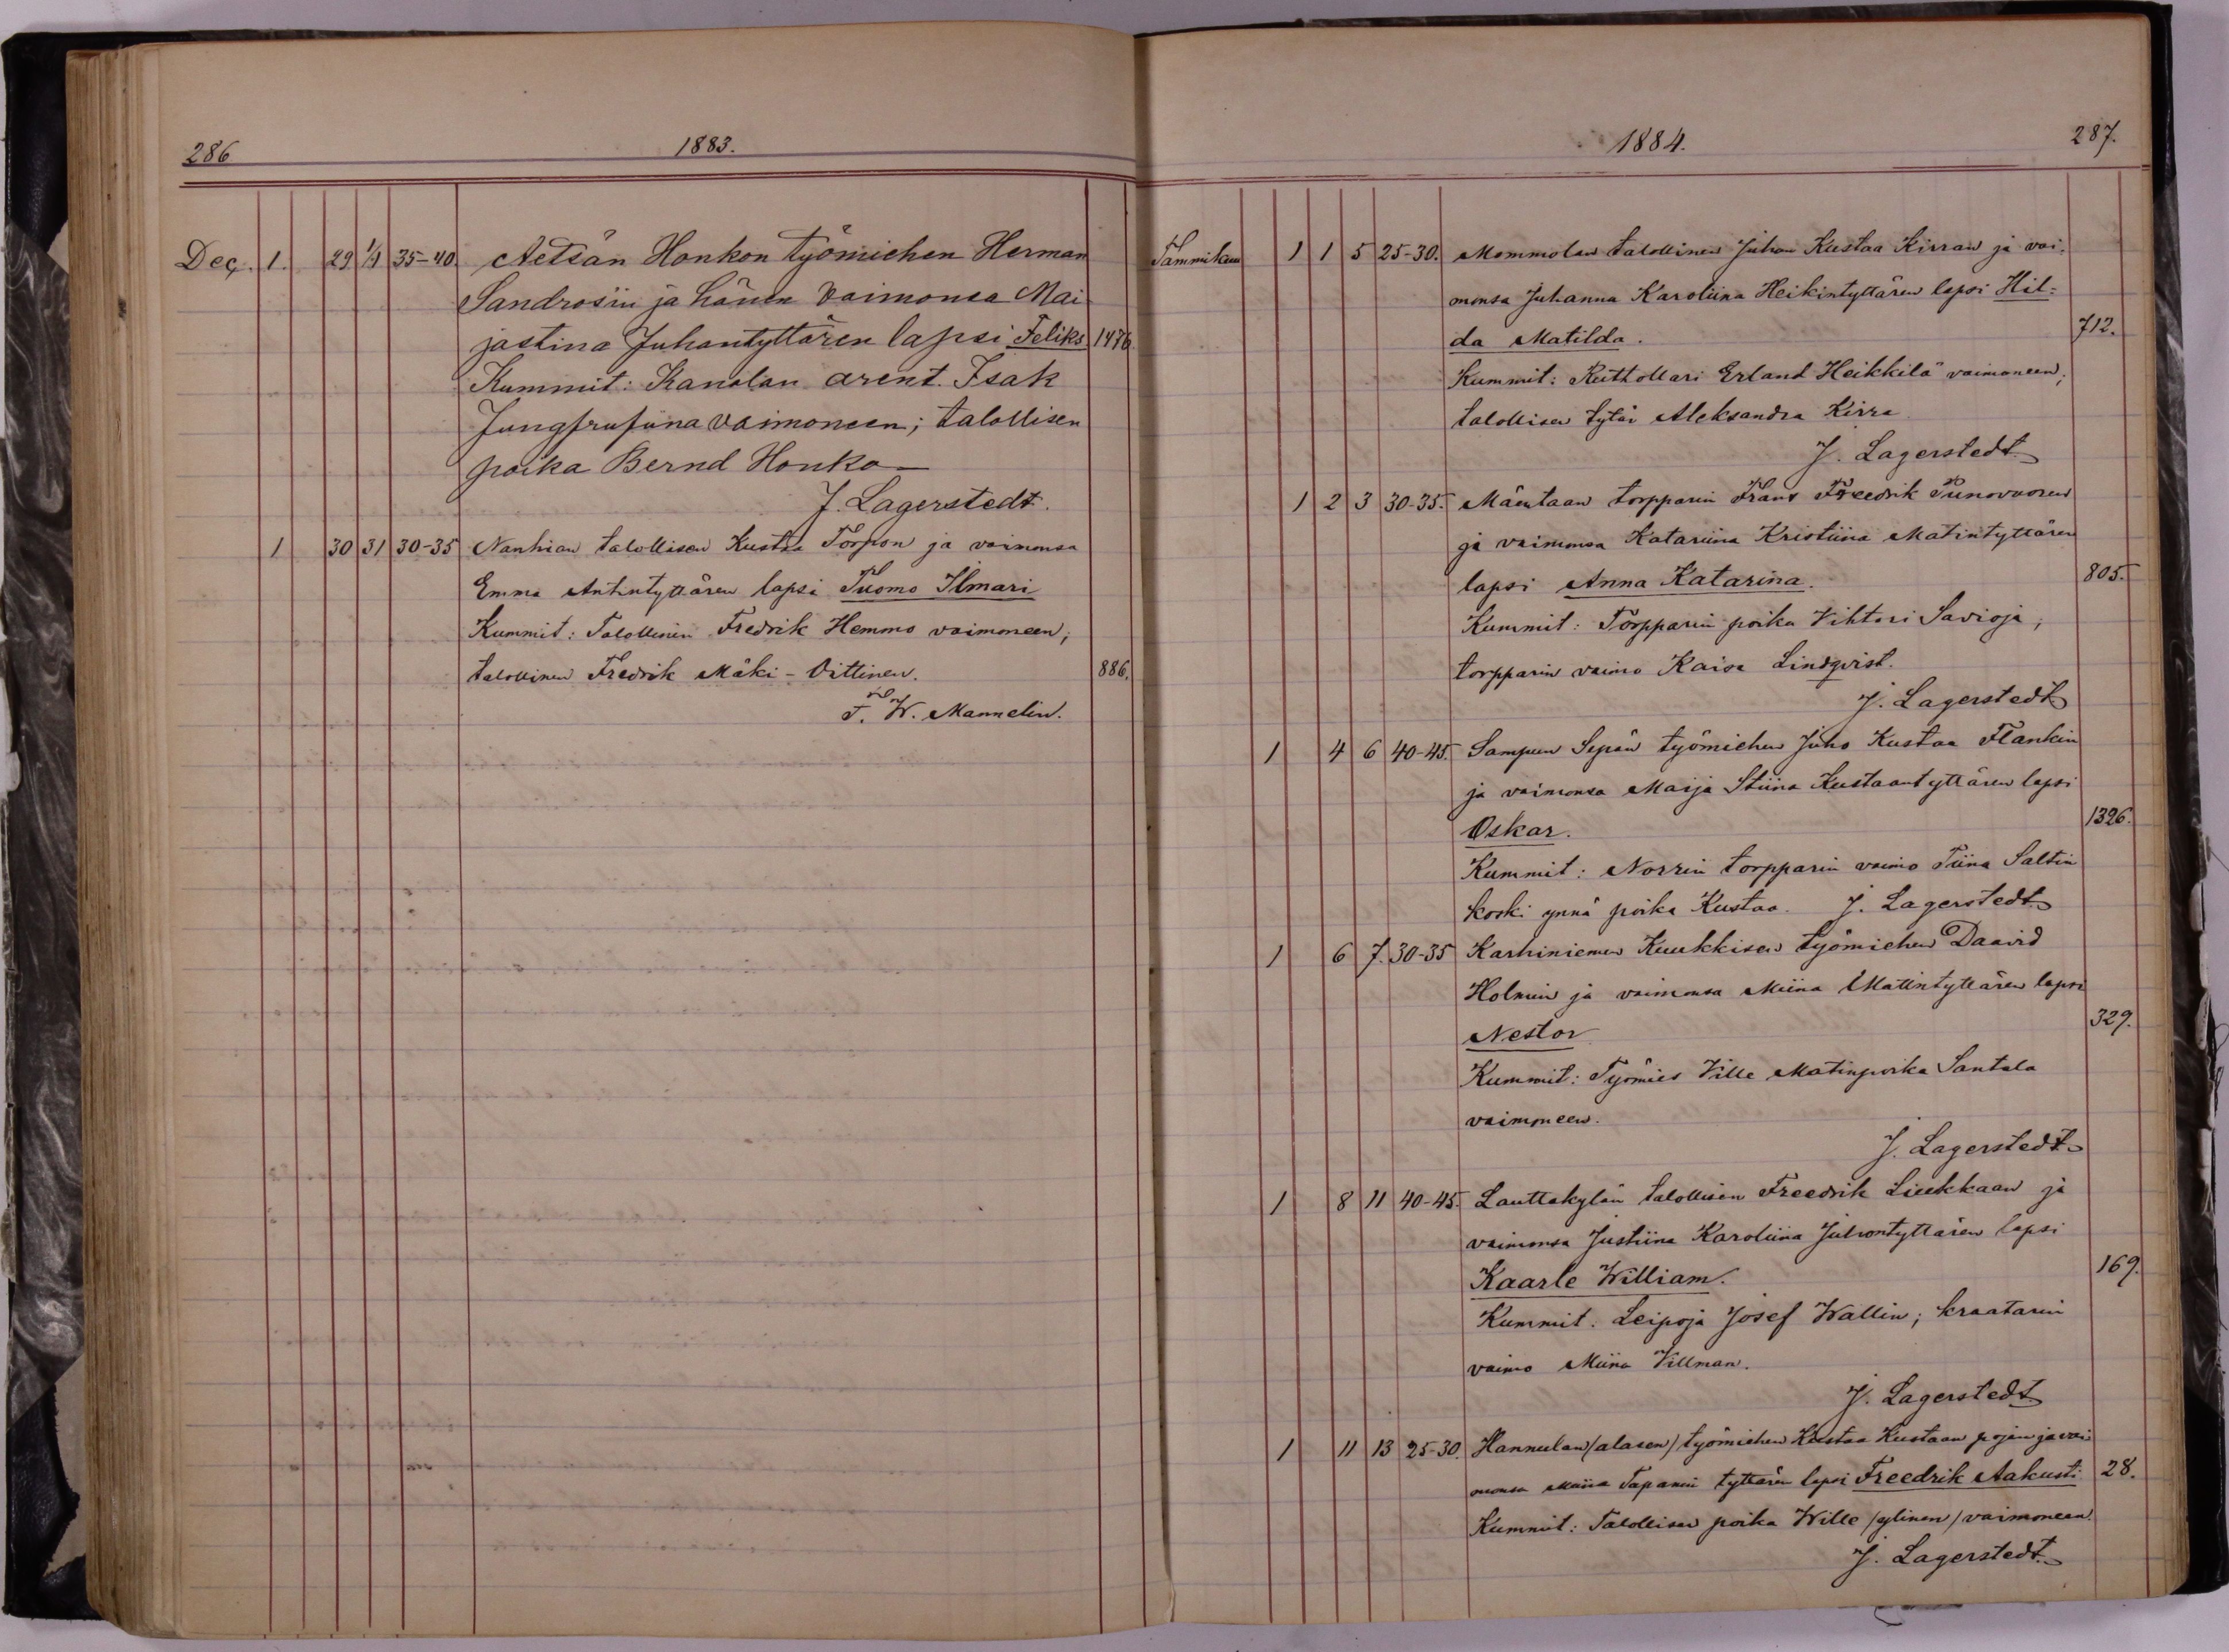 286
1883.
Dec. 1. 29 1/1 35-40. Aetsän Honkon työmiehen Herman
Sandrosin ja hänen vaimonsa Mai
jastina Juhantyttären lapsi Feliks 1476.
Kummit: Kanalan arent. Isak
Jungfru vaimoneen; talollisen
poika Bernd Honko
J. Lagerstedt.
1 30 31 30-35 Nanhian talollisen Kustaa Torpon ja vaimonsa
Emma Antintyttären lapsi Tuomo Ilmari
Kummit: Talollinen Fredrik Hemmo vaimoneen;
talollinen Fredrik Mäki-Vittinen. 886.
F. W. Mannelin.
1884.
287.
Tammikuu 1 1 5 25-30. Mommolan talollinen Juhan Kustaa Kirran ja vai-
monsa Juhanna Karoliina Heikintyttären lapsi Hil-
da Matilda. 712.
Kummit: Erland Heikkilä vaimoneen;
talollisen tytär Aleksandra Kirra
J. Lagerstedt
1 2 3 30-35. Mäentaan torpparin Frans Freedrik Punovuoren
ja vaimonsa Katariina Kristiina Matintyttären
lapsi Anna Katarina. 805.
Kummit: Torpparin poika Vihtori Savioja;
torpparin vaimo Kaisa Lindqvist.
J. Lagerstedt
1 4 6 40-45. Sampun Sepän työmiehen Juho Kustaa Flankin
ja vaimonsa Maija Stiina Kustaantyttären lapsi
Oskar. 1326.
Kummit: Norrin torpparin vaimo Tiina Saltin
koski ynnä poika Kustaa. J. Lagerstedt
1 6 7. 30-35 Karhiniemen Kuukkisen työmiehen Daavid
Holmin ja vaimonsa Miina Matintyttären lapsi
Nestor 329.
Kummit: Työmies Ville Matinpoika Santala
vaimoneen.
J. Lagerstedt
1 8 11 40-45. Lauttakylän talollisen Freedrik Liukkaan ja
vaimonsa Justiina Karoliina Juhontyttären lapsi
Kaarle William. 169.
Kummit. Leipoja Josef Wallin; kraatarin
vaimo Miina Villman.
J. Lagerstedt
1 11 13 25-30. Hannulan /alasen/ työmiehen Kustaa Kustaan pojan ja vai
monsa Miina Tapanin tyttären lapsi Freedrik Aakusti 28.
Kummit: Talollisen poika Wille /ylinen/ vaimoneen.
J. Lagerstedt